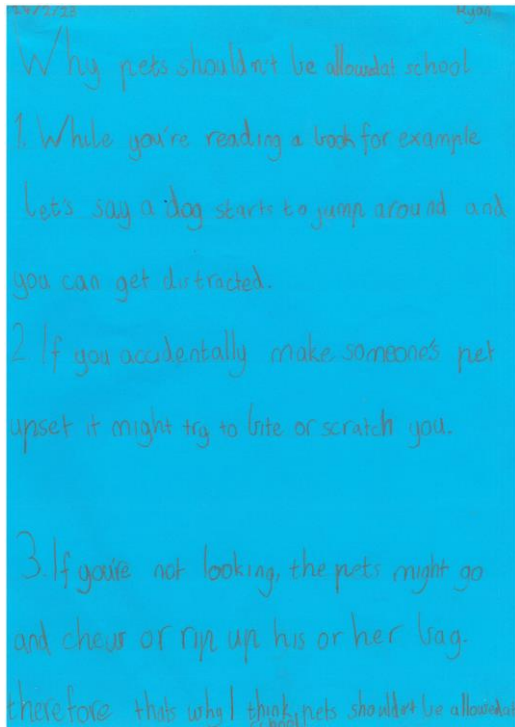 Ryan
Why pets shouldn't be allowed at school
1. While you're reading a book for example
Let's say a dog starts to jump around and
you can get distracted.
2. If you accidentally make someone's pet
upset it might try to bite or scratch you.
3. If you're not looking, the pets might go
and chew or rip up his or her bag.
therefore thats why I think pets shouldn't be allowed at
school